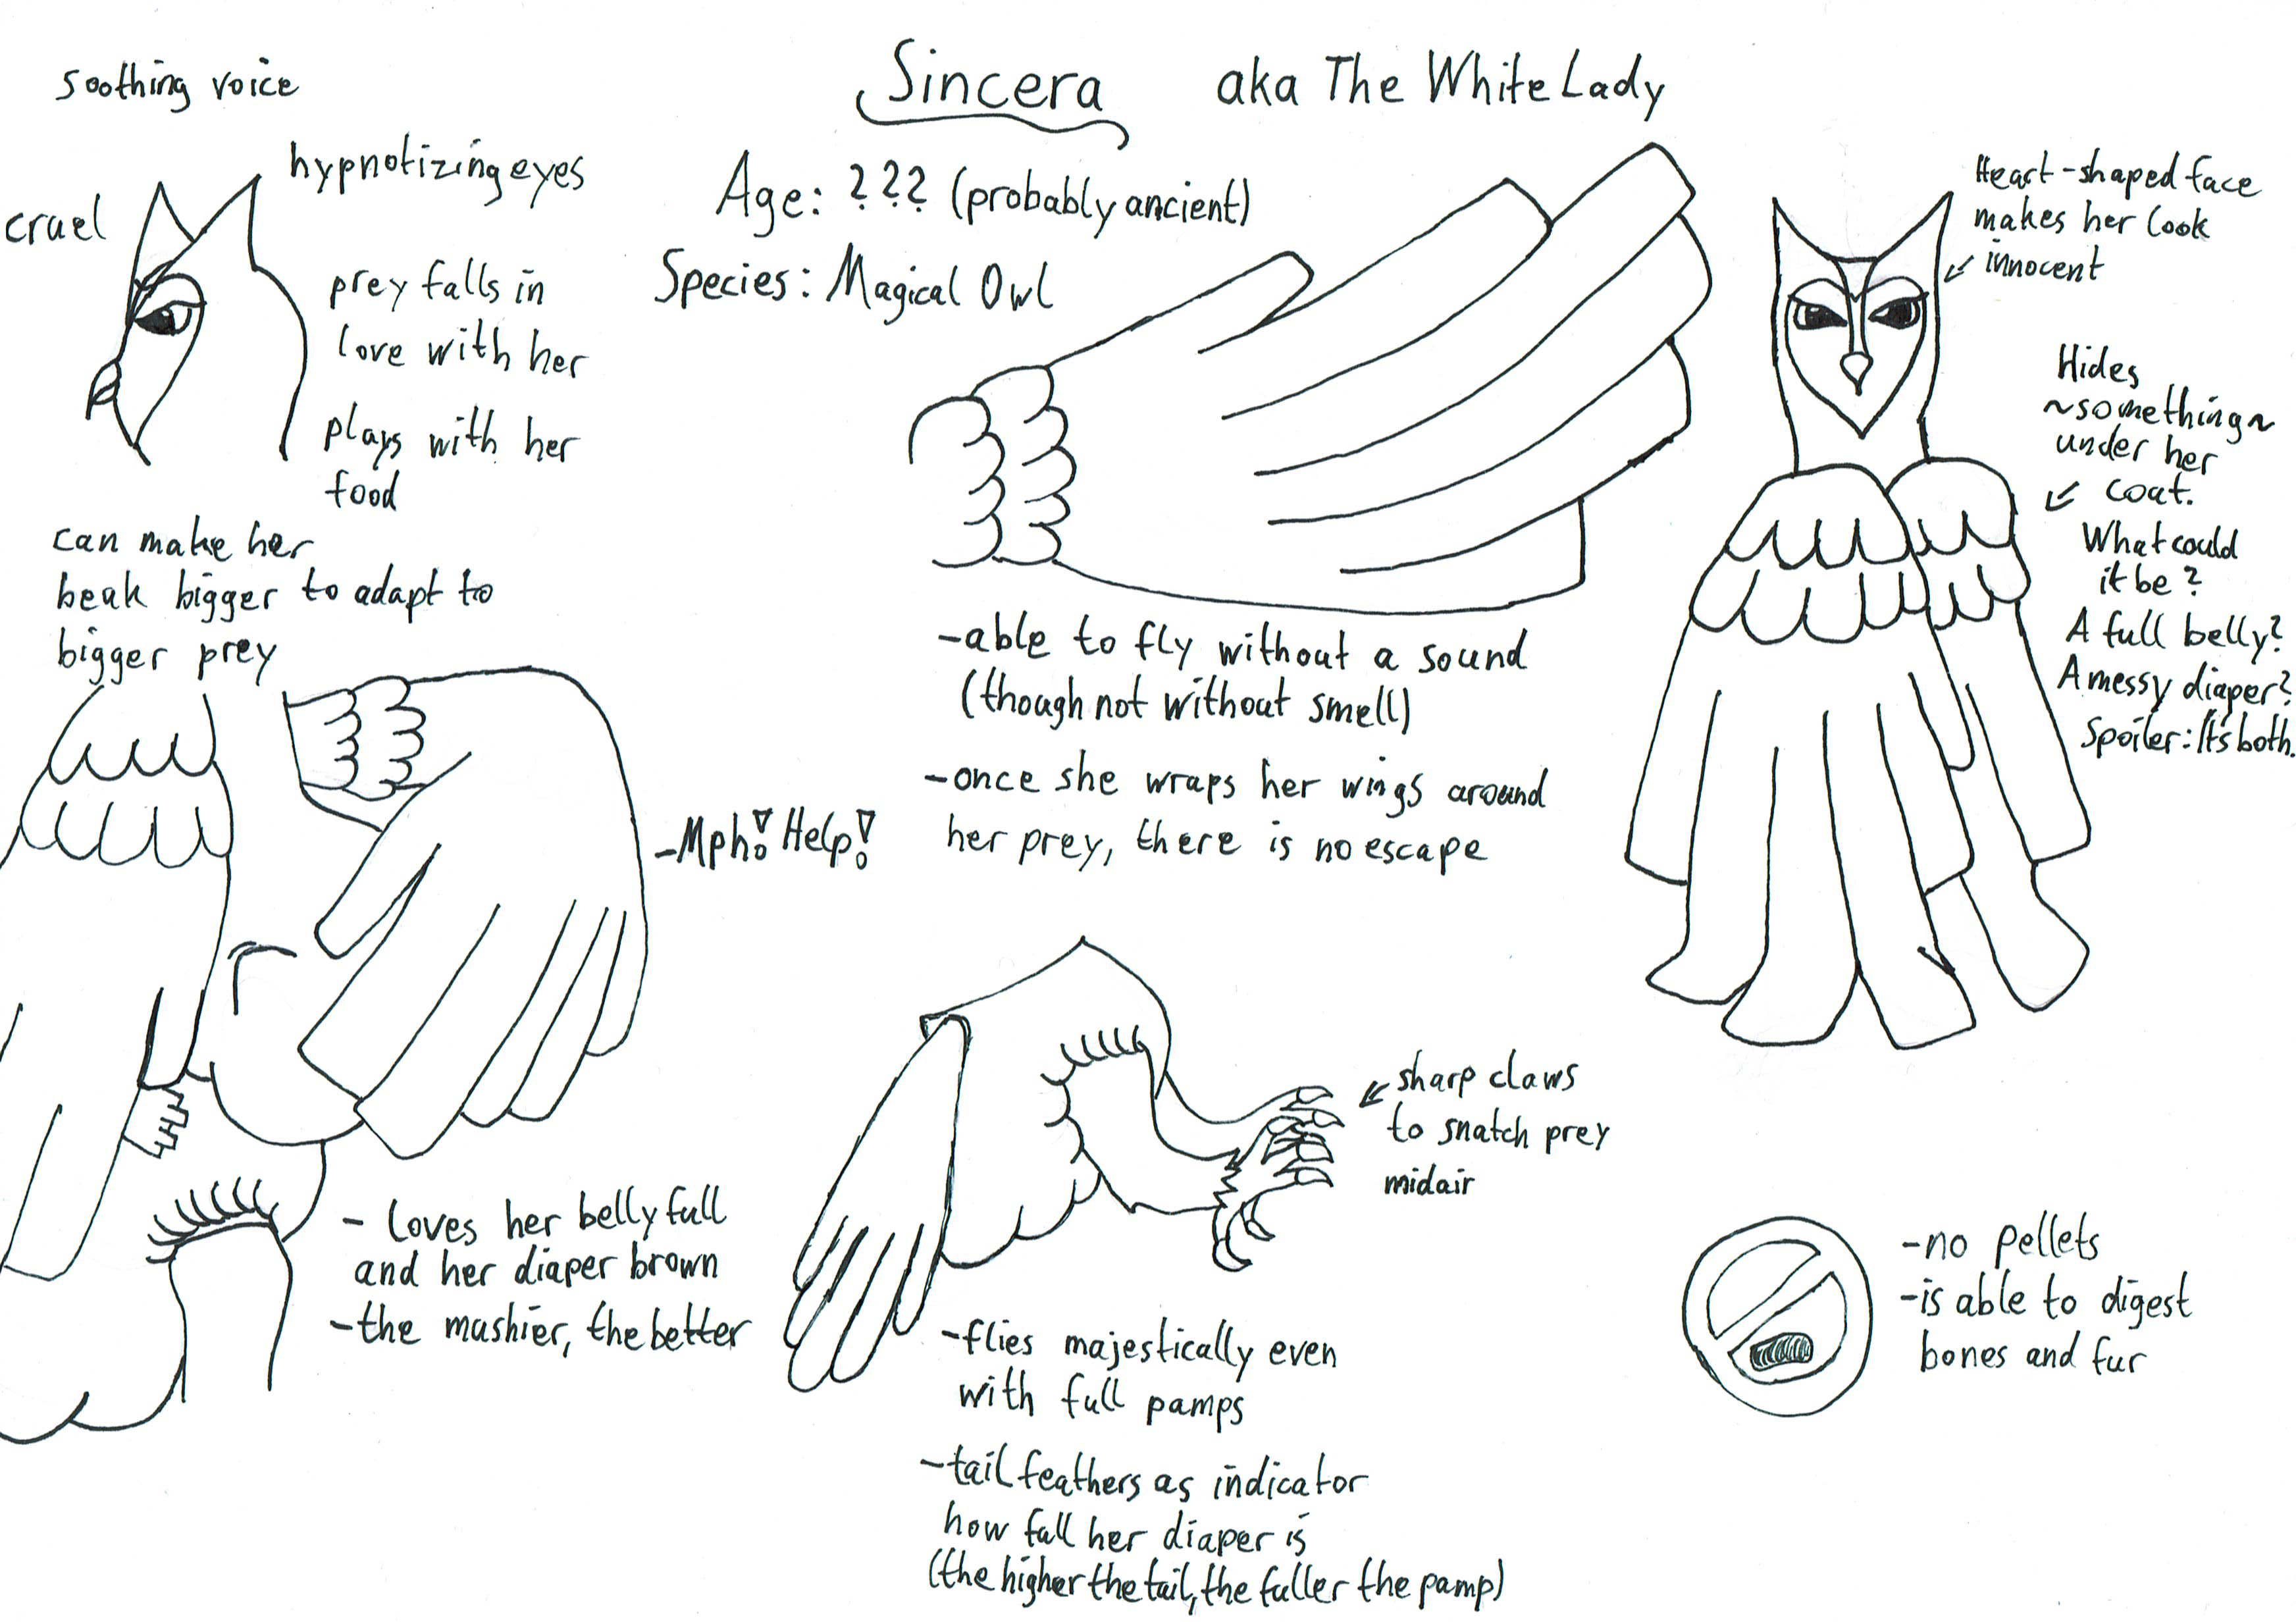 Sincera aka The White Lady
Age: ??? (probably ancient)
Species: Magical Owl
soothing voice
hypnotizing eyes
cruel
prey falls in
love with her
plays with her
food
can make her
beak bigger to adapt to
bigger prey
Heart-shaped face
makes her look
innocent
Hides
~something~
under her
coat.
What could
it be?
A full belly?
A messy diaper?
Spoiler: It's both.
-able to fly without a sound
(though not without smell)
-once she wraps her wings around
her prey, there is no escape
-Mph! Help!
- loves her belly full
and her diaper brown
-the mushier, the better
sharp claws
to snatch prey
midair
-flies majestically even
with full pamps
-tail feathers as indicator
how full her diaper is
(the higher the tail, the fuller the pamp)
-no pellets
-is able to digest
bones and fur